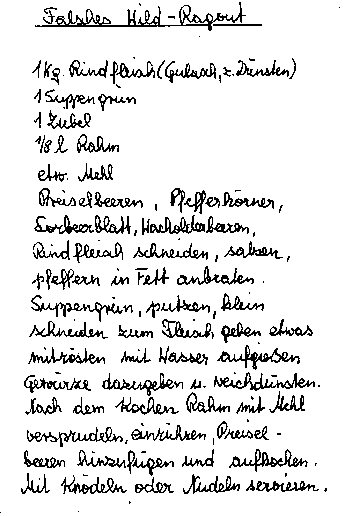 Falshes Wild-Ragout
1 Kg. Rindfleish (Gulasch, z. Dünsten)
1 Suppengrün
1 Zubel
1/8 l Rahm
etw. Mehl
Preiselbeeren, Pfefferkörner,
Lorbeerblatt, Wacholderbeeren,
Rindfleish schneiden, salzen,
pfeffern in Fett anbraten.
Suppengrün, putzen, klein
schneiden zum Fleisch geben etwas
mitrösten mit Wasser aufgießen
Gewürze dazugeben u. weichdünsten.
Nach dem Kochen Rahm mit Mehl
versprudeln, einrühren, Preisel-
beeren hinzufügen und aufkochen.
Mit Knödeln oder Nudeln servieren.